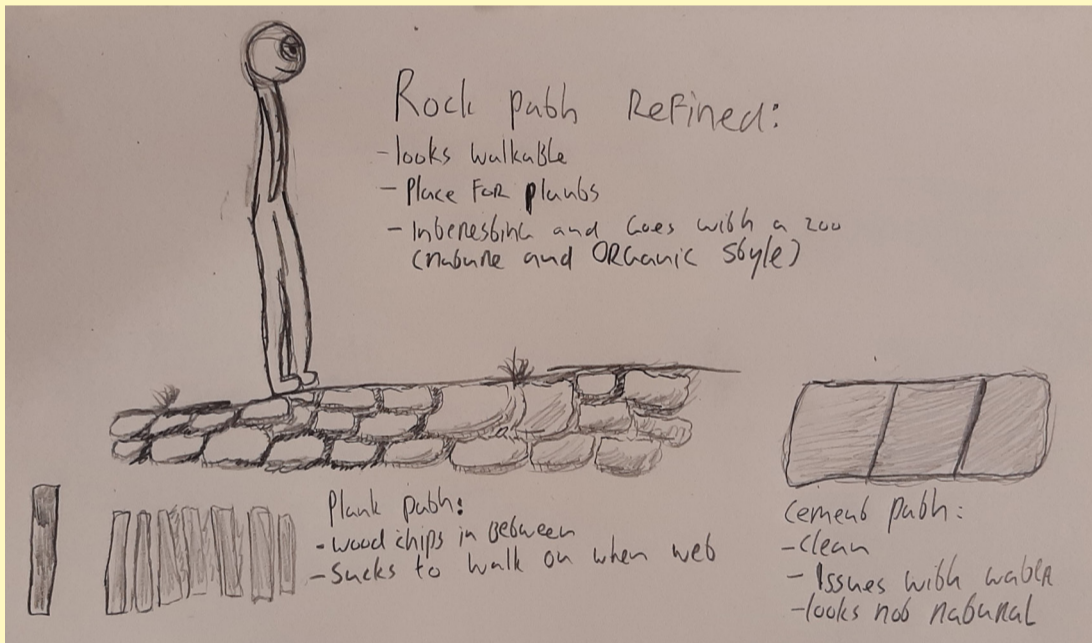 Rock path Refined:
- looks walkable
- Place FOR plants
- Interesting and Goes with a zoo
(nature and ORGanic style)
Plank path:
- wood chips in Between
- Sucks to walk on when wet
cement path:
- clean
- Issues with water
- looks not natural